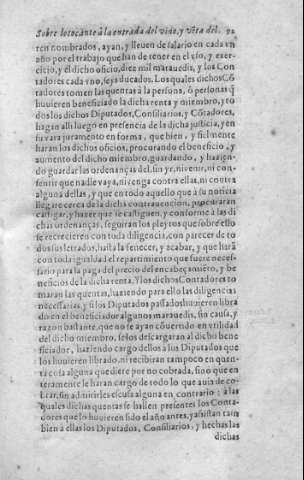 Sobre lo tocante à la entrada del vino, y vẽta del. 92
ren nombrados, ayan, y lleuen de salario en cada vn
año por el trabajo que han de tener en el vso, y exer-
cicio, y el dicho oficio, diez mil marauedis, y los Con
tadores cada vno, seys ducados. Los quales dichos Cõ
tadores tomen las quentas à la persona, ò personas q̃
huuieren beneficiado la dicha renta y miembro, y to
dos los dichos Diputados, Consiliarios, y Cõtadores,
hagan alli luego en presencia de la dicha justicia, y en
su vara juramento en forma, que bien, y fielmente
haran los dichos oficios, procurando el beneficio, y
aumento del dicho miembro, guardando, y hazien-
do guardar las ordenanças del, sin yr, ni venir, ni con-
sentir que nadie vaya, ni venga contra ellas, ni contra
alguna dellas, y que en todo aquello que à su noticia
llegare cerca de la dicha contrauencion, procuraran
castigar, y hazer que se castiguen, y conforme à las di
chas ordenanças, seguiran los pleytos que sobre ello
se recrecieren con toda diligencia, con parecer de to
dos sus letrados, hasta la fenecer, y acabar, y que harã
con toda igualdad el repartimiento que fuere neces-
sario para la paga del precio del encabeçamiẽto, y be
neficios de la dicha renta. Y los dichos Contadores to
maran las quentas, haziendo para ello las diligencias
necessarias, y si los Diputados passados huuieren libra
do en el beneficiador algunos marauedis, sin causa, y
razon bastante, que no se ayan cõuertido en vtilidad
del dicho miembro, se los descargaran al dicho bene
ficiador, haziendo cargo dellos a los Diputados que
los huuieren librado, ni recibiran tampoco en quen-
ta cosa alguna que diere por no cobrada, sino que en
teramente le haran cargo de todo lo que auia de co-
brar, sin admitirles escusa alguna en contrario: à las
quales dichas quentas se hallen presentes los Conta-
dores que lo huuieren sido el año antes, y assistan tam
bien à ellas los Diputados, Consiliarios, y hechas las
dichas